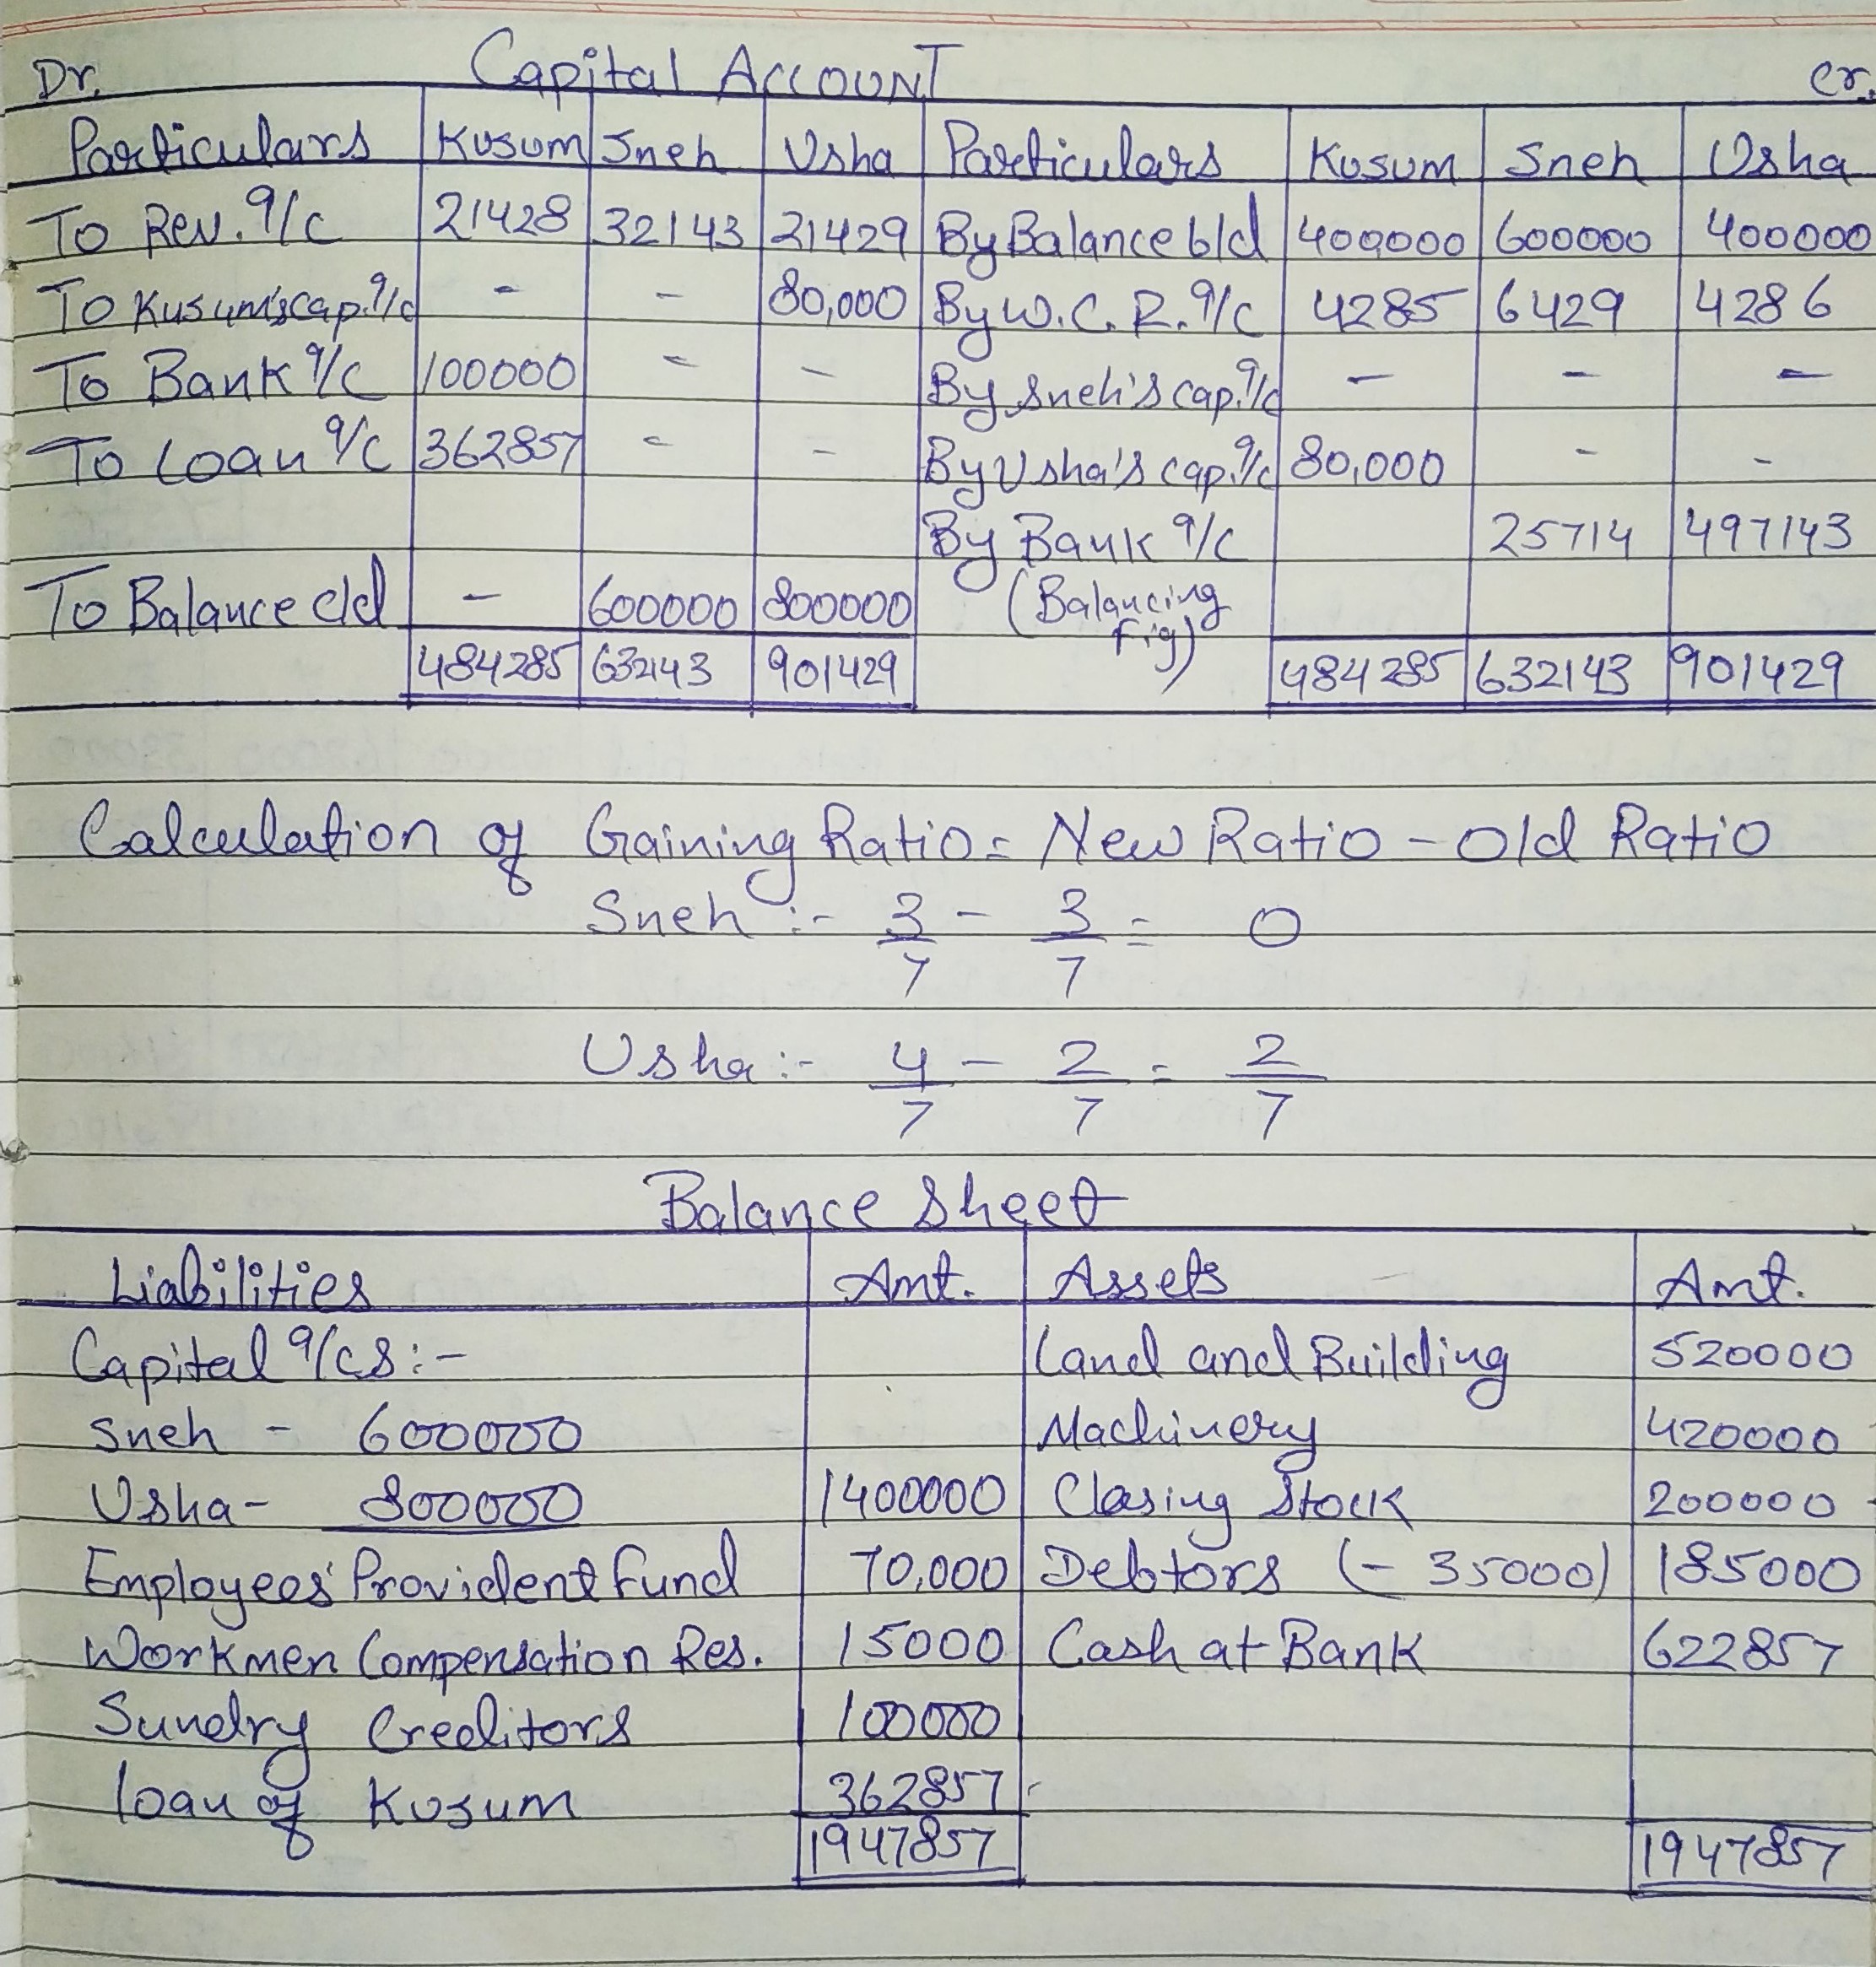 Dr. Capital ACCOUNT Cr.
Particulars Kusum Sneh Usha Particulars Kusum Sneh Usha
To Rev. a/c 21428 32143 21429 By Balance b/d 400000 600000 400000
To Kusum's cap. a/c - - 80,000 By W.C.R. a/c 4285 6429 4286
To Bank a/c 100000 - - By Sneh's cap. a/c - - -
To Loan a/c 362857 - - By Usha's cap. a/c 80,000 - -
By Bank a/c 25714 497143
To Balance c/d - 600000 800000 (Balancing
fig)
484285 632143 901429 484285 632143 901429
Calculation of Gaining Ratio = New Ratio - Old Ratio
Sneh :- 3/7 - 3/7 = 0
Usha :- 4/7 - 2/7 = 2/7
Balance Sheet
Liabilities Amt. Assets Amt.
Capital a/cs :- Land and Building 520000
Sneh - 600000 Machinery 420000
Usha - 800000 1400000 Closing Stock 200000
Employees' Provident Fund 70,000 Debtors (- 35000) 185000
Workmen Compensation Res. 15000 Cash at Bank 622857
Sundry Creditors 100000
Loan of Kusum 362857
1947857 1947857